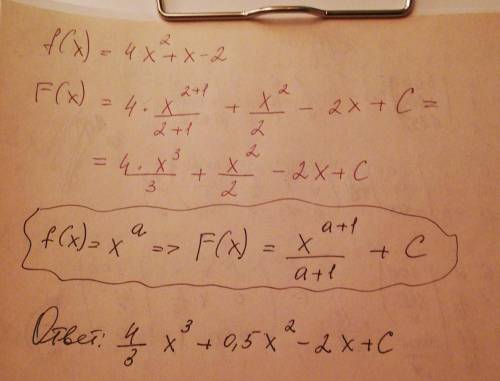 f(x) = 4x² + x - 2
F(x) = 4 · x²⁺¹/(2+1) + x²/2 - 2x + C =
= 4·x³/3 + x²/2 - 2x + C
f(x) = xᵃ => F(x) = xᵃ⁺¹/(a+1) + C
Ответ: 4/3 x³ + 0,5x² - 2x + C